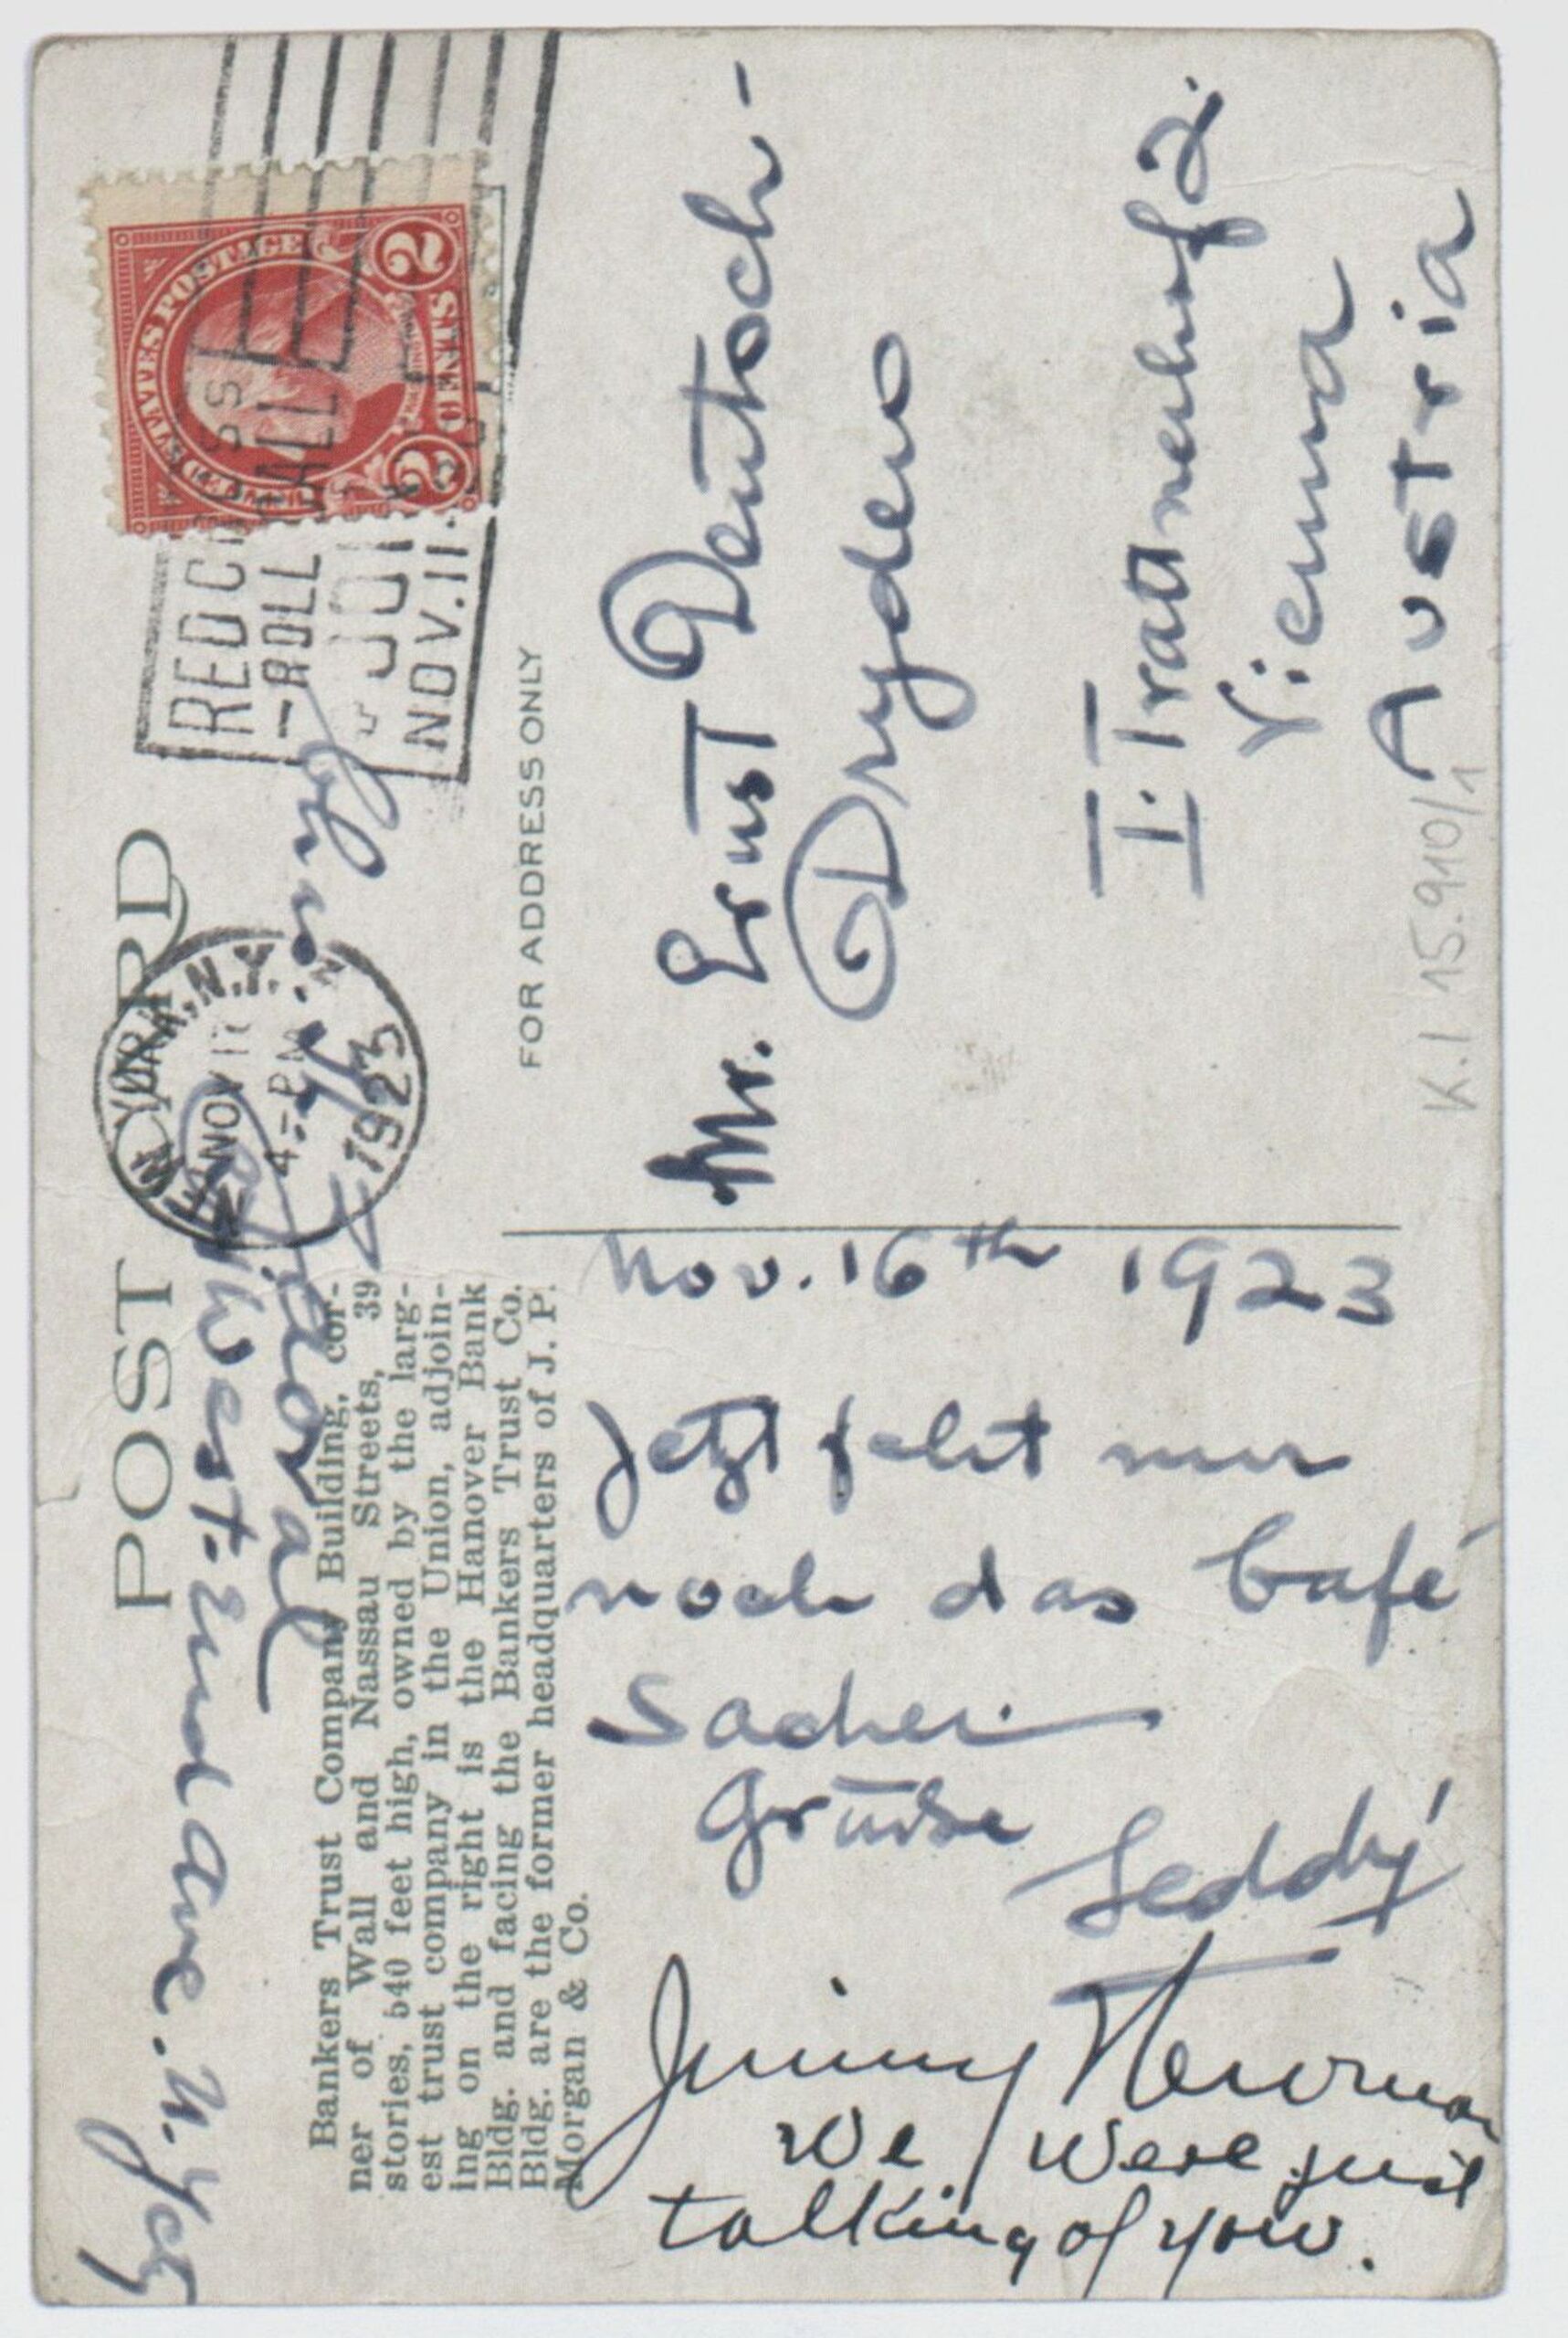 POST CARD
NEW YORK, N.Y.
NOV 1
4-PM
1923
RED C SS
-ROLL CALL-
JOIN
NOV. 11
UNITED STATES POSTAGE
2 CENTS 2
West-End Ave. N. York
Bankers Trust Company Building, cor-
ner of Wall and Nassau Streets, 39
stories, 540 feet high, owned by the larg-
est trust company in the Union, adjoin-
ing on the right is the Hanover Bank
Bldg. and facing the Bankers Trust Co.
Bldg. are the former headquarters of J. P.
Morgan & Co.
Nov. 16th 1923
Jetzt fehlt nur
noch das Café
Sacher.
Grüsse
Teddy
Jimmy Newman
We were just
talking of you.
FOR ADDRESS ONLY
Mr. Ernst Deutsch-
Dryden
I. Trattnerhof 2.
Vienna
Austria
K.I 15.910/1